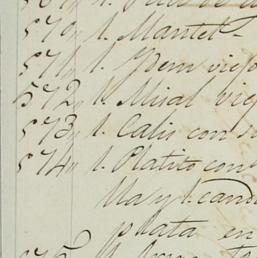 570 1. Mantel-
571 1. Ydem viejo
572 1. Misal vie
573 1. Calis con s
574 1. Platito con
May 1. cand
plata en
575